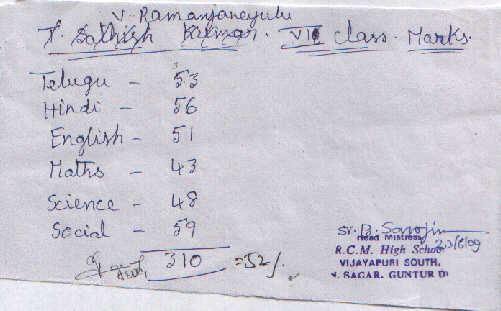 V. Ramanjaneyulu
T. Sathish Kumar. VII class. Marks.
Telugu - 53
Hindi - 56
English - 51
Maths - 43
Science - 48
Social - 59
310 = 52%.
Sr. B. Sarojini
Head Mistress
R.C.M. High School
23/6/09
VIJAYAPURI SOUTH,
N. SAGAR. GUNTUR D